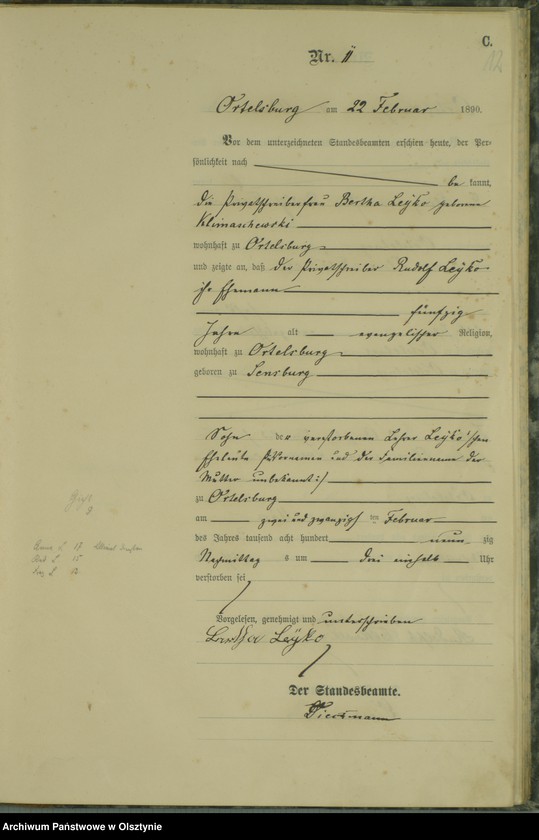 C.
Nr. 11
Ortelsburg am 22 Februar 1890.
Vor dem unterzeichneten Standesbeamten erschien heute, der Per-
sönlichkeit nach
be kannt,
die Privatschreiberfrau Bertha Leÿko geborene
Klimaschewski
wohnhaft zu Ortelsburg
und zeigte an, daß der Privatschreiber Rudolf Leÿko
ihr Ehemann
fünfzig
Jahre alt evangelischer Religion,
wohnhaft zu Ortelsburg
geboren zu Sensburg
Sohn der verstorbenen Lehrer Leÿko'schen
Eheleute /:Vornamen und der Familienname der
Mutter unbekannt:/
zu Ortelsburg
am zwei und zwanzigsten Februar
des Jahres tausend acht hundert neun zig
Nachmittag s um drei einhalb Uhr
verstorben sei
Vorgelesen, genehmigt und unterschrieben
Bertha Leÿko
Der Standesbeamte.
Archiwum Państwowe w Olsztynie